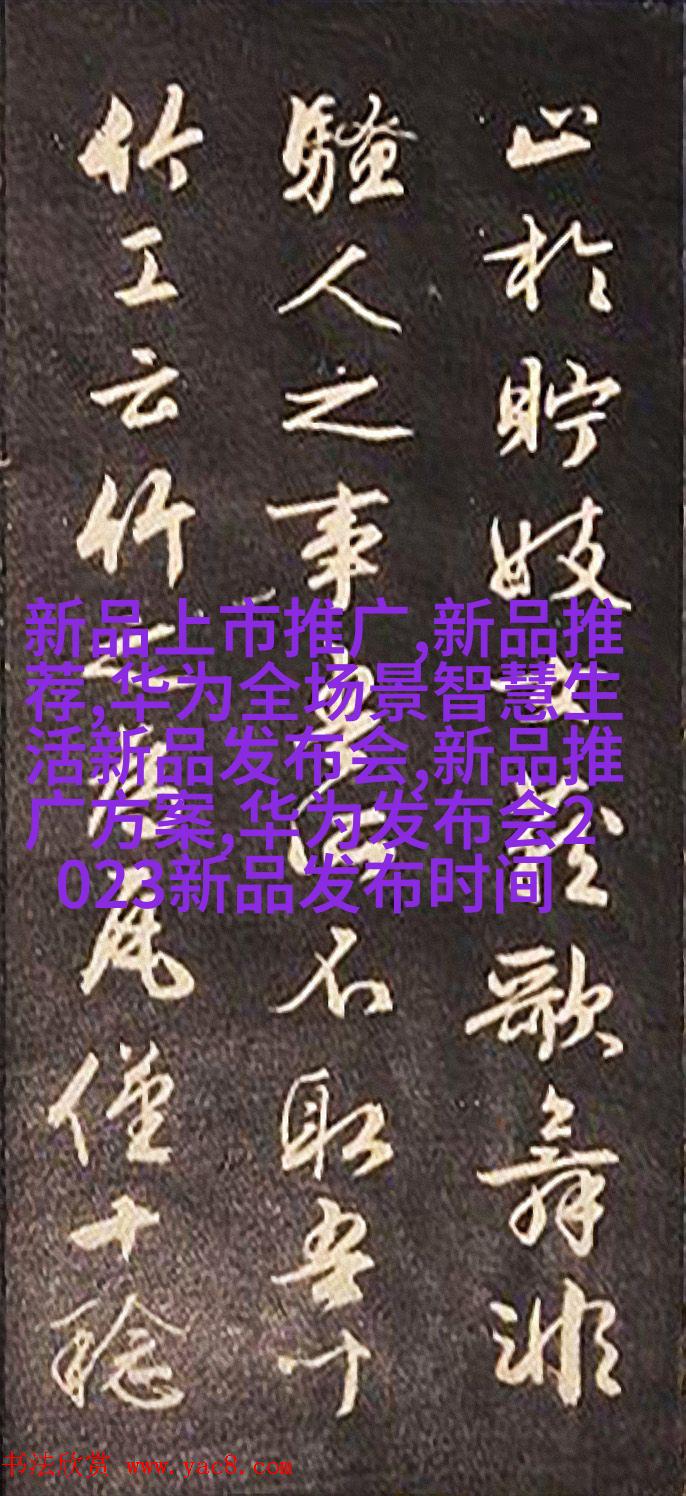 止於貯妓女藏歌舞非
騷人之事吾所不取吾
竹工云竹之為瓦僅十稔
新品上市推广,新品推
荐,华为全场景智慧生
活新品发布会,新品推
广方案,华为发布会2
023新品发布时间
书法欣赏 www.yac8.com